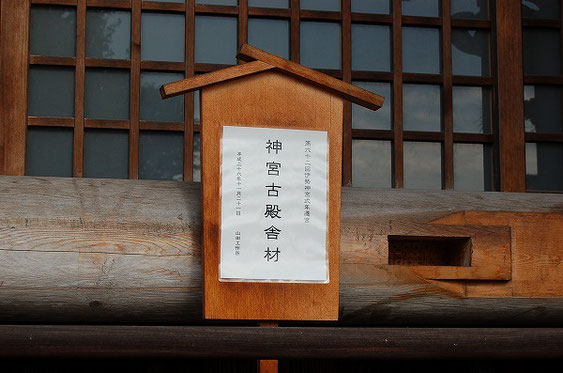 第六十二回伊勢神宮式年遷宮
神宮古殿舎材
平成二十六年十一月二十一日　山田工作所